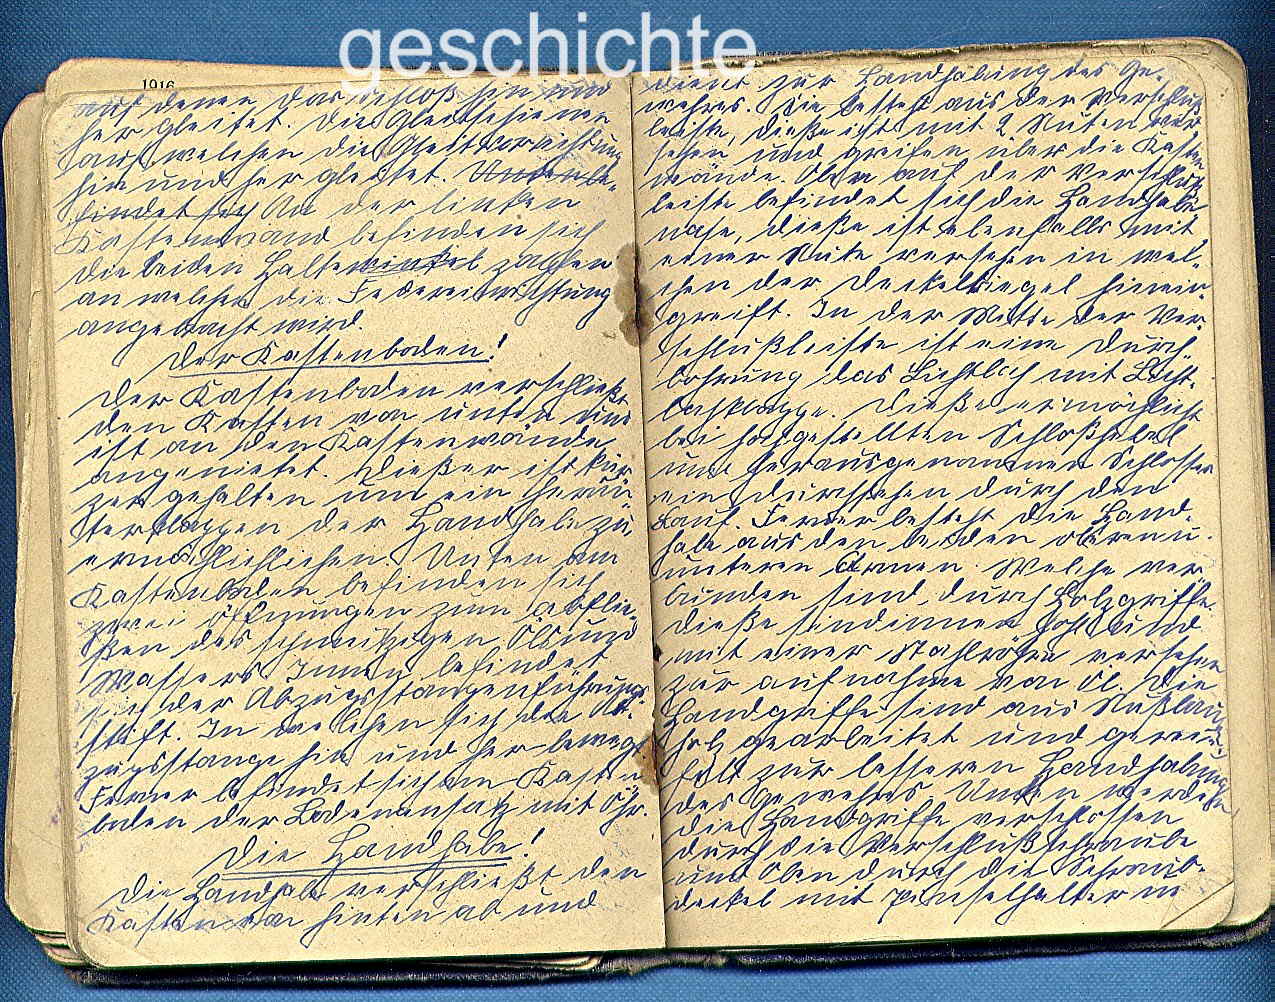 geschichte
1916
auf denen das Schloß hin und
her gleitet. Die Gleitschienen
auf welchen die Gleitvorrichtung
hin und her gleitet. Unten be-
findet sich An der linken
Kastenwand befinden sich
die beiden Haltewinkel zapfen
an welchen die Federeinrichtung
angebracht wird.
Der Kastenboden!
Der Kastenboden verschließt
den Kasten von unten und
ist an den Kastenwände
angenietet. Dießer ist kür-
zer gehalten um ein herun-
terklappen der Handhabe zu
ermöglichen. Unten am
Kastenboden befinden sich
zwei Öffnungen zum abflie-
ßen des schmutzigen Öls und
Wassers Innen befindet
sich der Abzugsstangenführungs-
stift. In welchen sich die Ab-
zugsstange hin und her bewegt
Ferner befindet sich am Kasten
boden der Bodenansatz mit Öhr.
Die Handhabe!
Die Handhabe verschließt den
Kasten von hinten ab und
dient zur Handhabung des Ge-
wehres. Sie besteht aus der Verschluß
leiste, dieße ist mit 2 Nuten ver
sehen und greifen über die Kasten
wände. Oben auf der Verschluß
leiste befindet sich die Handhabe
nase, dieße ist ebenfalls mit
einer Nute versehen in wel-
chen der Deckelriegel hinein
greift. In der Mitte der Ver-
schlußleiste ist eine Durch-
bohrung das Lichtloch mit Licht-
lochklappe. Dieße ermöglicht
bei hochgestellten Schloßhebel
und herausgenommen Schlosse
ein durchsehen durch den
Lauf. Ferner besteht die Hand-
habe aus den beiden oberen u.
unteren Armen. Welche ver
bunden sind durch Holzgriffe.
Dieße sind innen hohl und
mit einer Stahlröhre versehen
zur aufnahme von Öl. Die
Handgriffe sind aus Nußbaum-
holz gearbeitet und gerei-
felt zur besseren Handhabung
des Gewehres. Unten werden
die Handgriffe verschlossen
durch die Verschlußschraube
und Oben durch die Schraub-
deckel mit Pinselhalter in